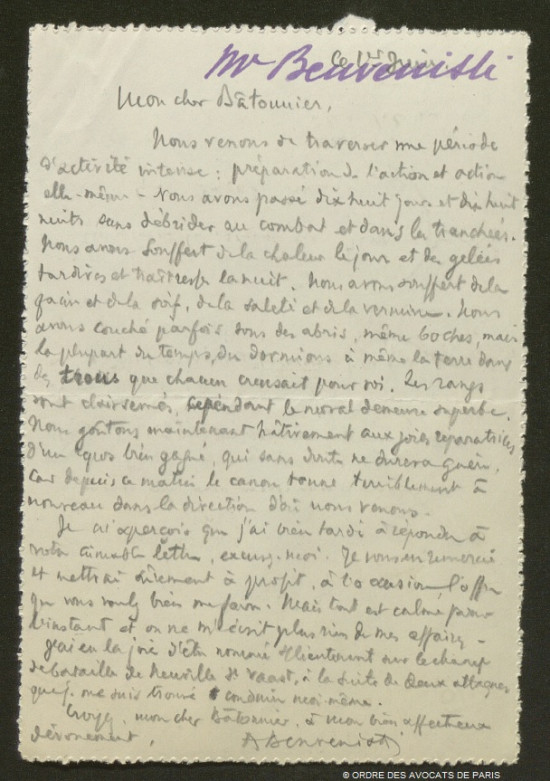 Mr Benvenisti
Ce 1er Juin
Mon cher Bâtonnier,
Nous venons de traverser une période
d'activité intense : préparation de l'action et action
elle-même - Nous avons passé dix huit jours et dix huit
nuits sans débrider au combat et dans les tranchées.
Nous avons souffert de la chaleur le jour et des gelées
tardives et traîtresses la nuit. Nous avons souffert de la
faim et de la soif, de la saleté et de la vermine. Nous
avons couché parfois sous des abris, même boches, mais
la plupart du temps, nous dormions à même la terre dans
des trous que chacun creusait pour soi. Les rangs
sont clairsemés, cependant le moral demeure superbe.
Nous goûtons maintenant hâtivement aux joies réparatrices
d'un repos bien gagné, qui sans doute ne durera guère,
car depuis ce matin le canon tonne terriblement à
nouveau dans la direction d'où nous venons.
Je m'aperçois que j'ai bien tardé à répondre à
votre aimable lettre, excusez-moi. Je vous en remercie
et mettrai sûrement à profit, à l'occasion, l'offre
que vous voulez bien me faire. Mais tout est calme pour
l'instant et on ne m'écrit plus rien de mes affaires -
J'ai eu la joie d'être nommé s/lieutenant sur le champ
de bataille de Neuville St Vaast, à la suite de deux attaques
que je me suis trouvé conduire moi-même.
Croyez, mon cher Bâtonnier, à mon bien affectueux
dévouement,
ABenvenisti
© ORDRE DES AVOCATS DE PARIS